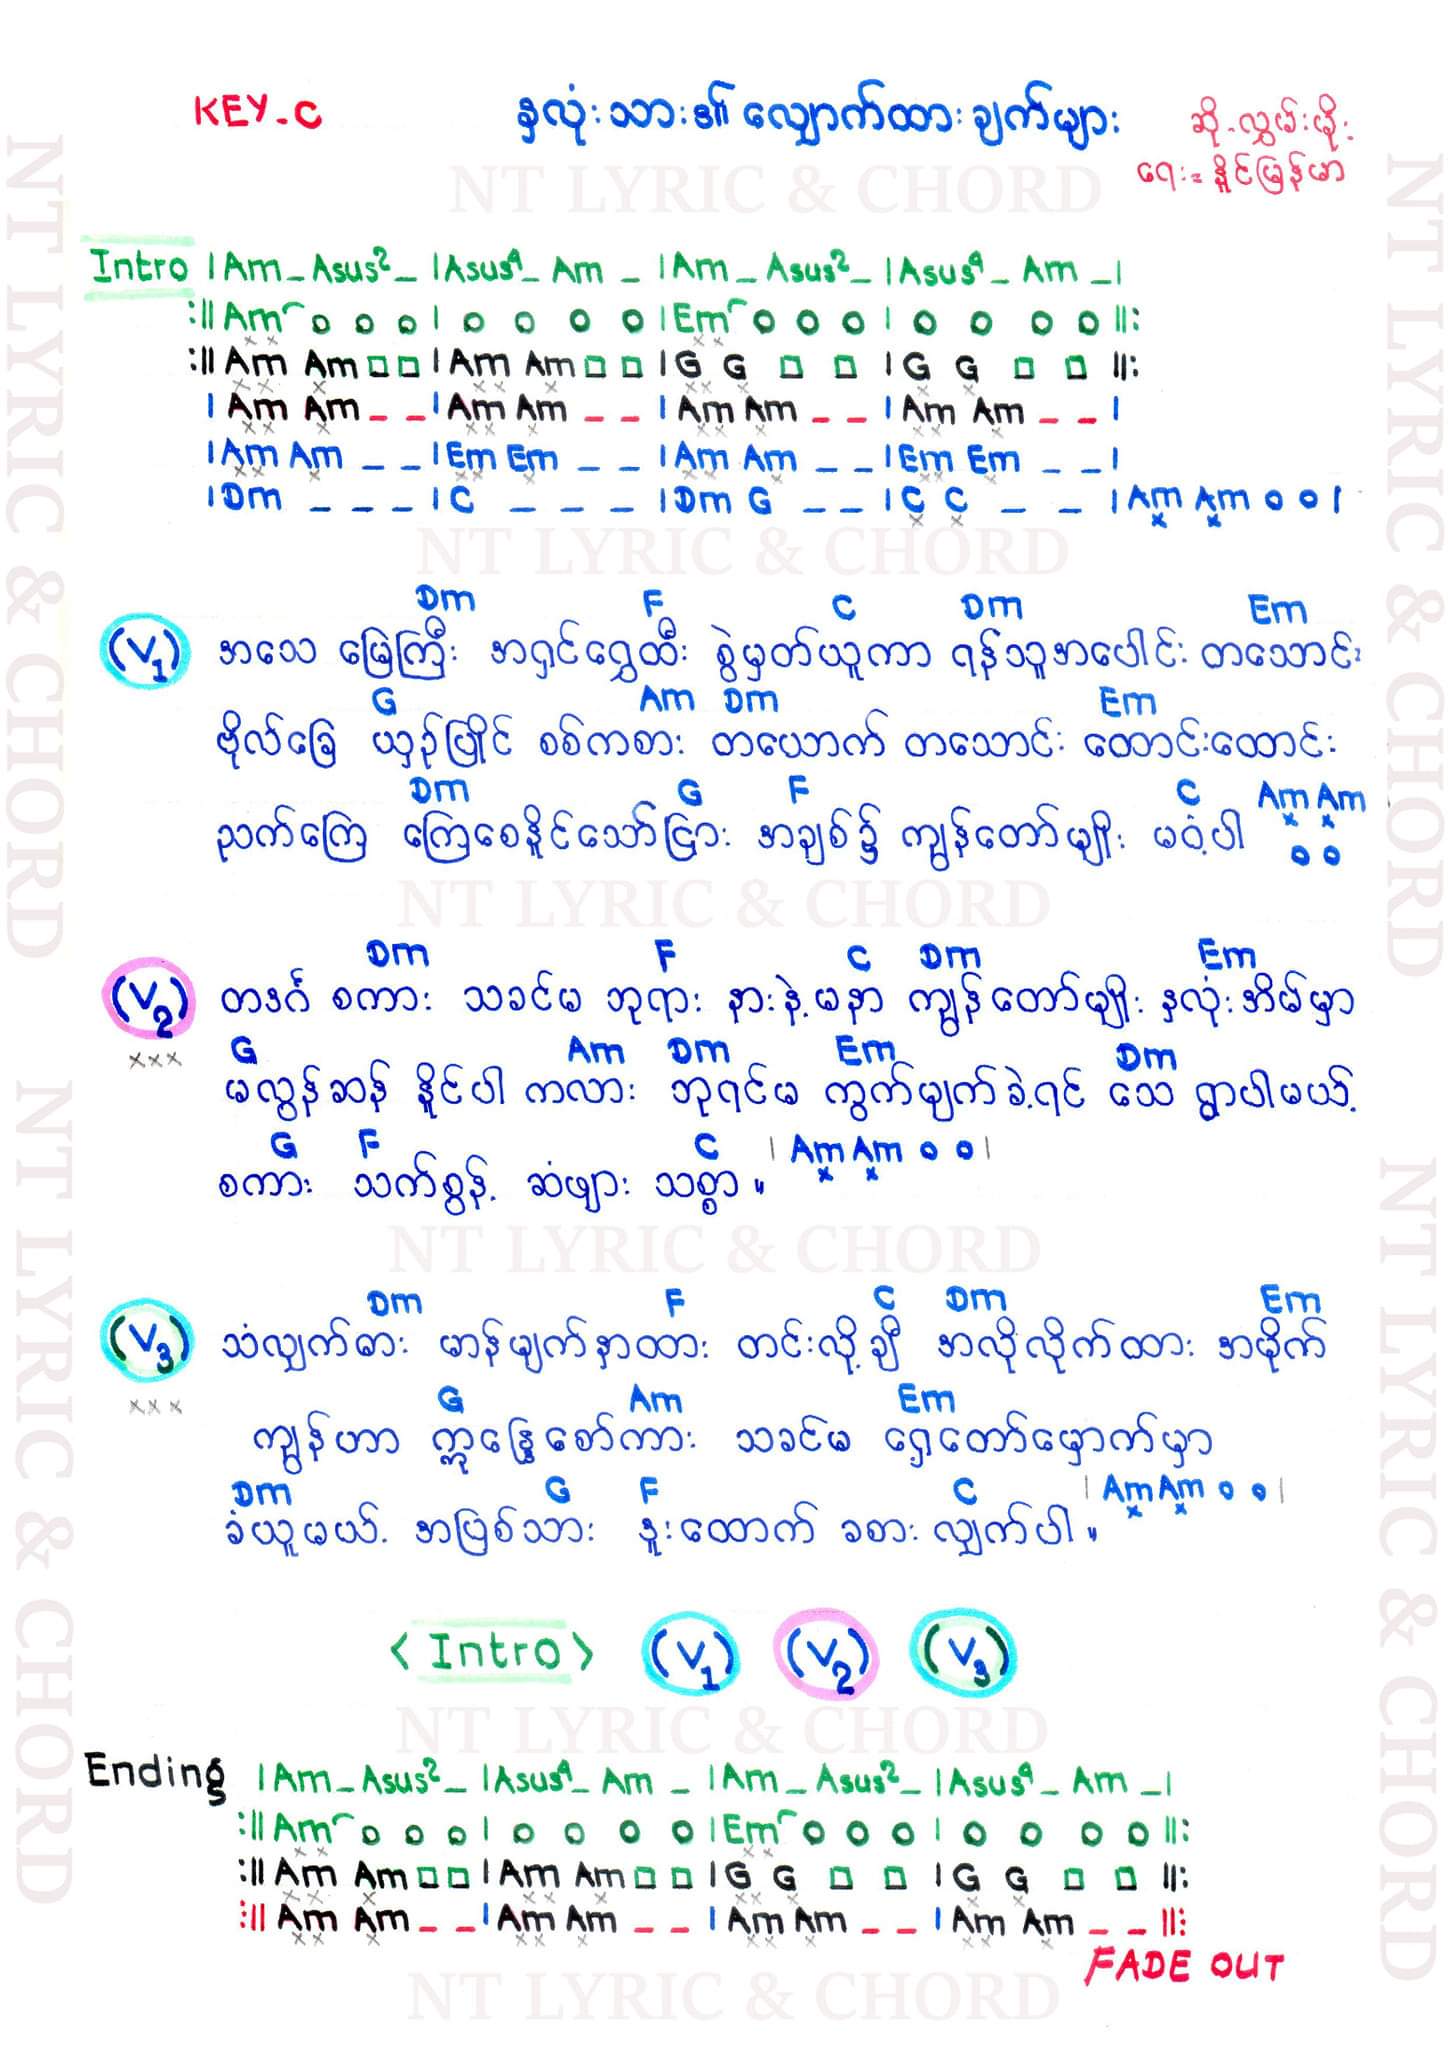 KEY-C နှလုံးသား၏ လျှောက်ထားချက်များ ဆို-လွှမ်းမိုး
ရေး=နိုင်မြန်မာ
NT LYRIC & CHORD
Intro |Am_Asus²_|Asus⁴_Am_|Am_Asus²_|Asus⁴_Am_|
:||Am o o o | o o o o |Em o o o | o o o o ||:
:||Am Am□□|Am Am□□|G G □ □ |G G □ □ ||:
|Am Am _ _|Am Am _ _ |Am Am _ _ |Am Am _ _ |
|Am Am _ _|Em Em _ _ |Am Am _ _|Em Em _ _ |
|Dm _ _ _|C _ _ _ |Dm G _ _|C C _ _ |Am Am o o |
NT LYRIC & CHORD
Dm F C Dm Em
(V1) အသေ မြေကြီး အရှင်ရွှေထီး စွဲမှတ်ယူကာ ရန်သူအပေါင်း တသောင်း
G Am Dm Em
ဗိုလ်ခြေ ယှဉ်ပြိုင် စစ်ကစား တယောက် တသောင်း ထောင်းထောင်း
Dm G F C Am Am
ညက်ကြေ ကြေစေနိုင်သော်ငြား အချစ်၌ ကျွန်တော်မျိုး မဝံ့ပါ o o
NT LYRIC & CHORD
Dm F C Dm Em
(V2) တဒင်္ဂ စကား သခင်မ ဘုရား နားနဲ့မနာ ကျွန်တော်မျိုး နှလုံးအိမ်မှာ
xxx
G Am Dm Em Dm
မလွန်ဆန် နိုင်ပါ ကလား ဘုရင်မ ကွက်မျက်ခဲ့ရင် သေ ရွာပါမယ့်
G F C | Am Am o o |
စကား သက်စွန့် ဆံဖျား သစ္စာ ။
NT LYRIC & CHORD
Dm F C Dm Em
(V3) သံလျှက်ဓား မာန်မျက်နှာထား တင်းလို့ချီ အလိုလိုက်ထား အမိုက်
xxx
G Am Em
ကျွန်ဟာ ဣန္ဒြေစော်ကား သခင်မ ရှေ့တော်မှောက်မှာ
Dm G F C | Am Am o o |
ခံယူမယ် အပြစ်သား ဒူးထောက် ခစား လျှက်ပါ ။
< Intro > (V1) (V2) (V3)
NT LYRIC & CHORD
Ending |Am_Asus²_|Asus⁴_Am_|Am_Asus²_|Asus⁴_Am_|
:||Am o o o | o o o o |Em o o o | o o o o ||:
:||Am Am□□|Am Am□□|G G □ □ |G G □ □ ||:
:||Am Am _ _|Am Am _ _ |Am Am _ _ |Am Am _ _ ||:
FADE OUT
NT LYRIC & CHORD
NT LYRIC & CHORD
NT LYRIC & CHORD
NT LYRIC & CHORD
NT LYRIC & CHORD